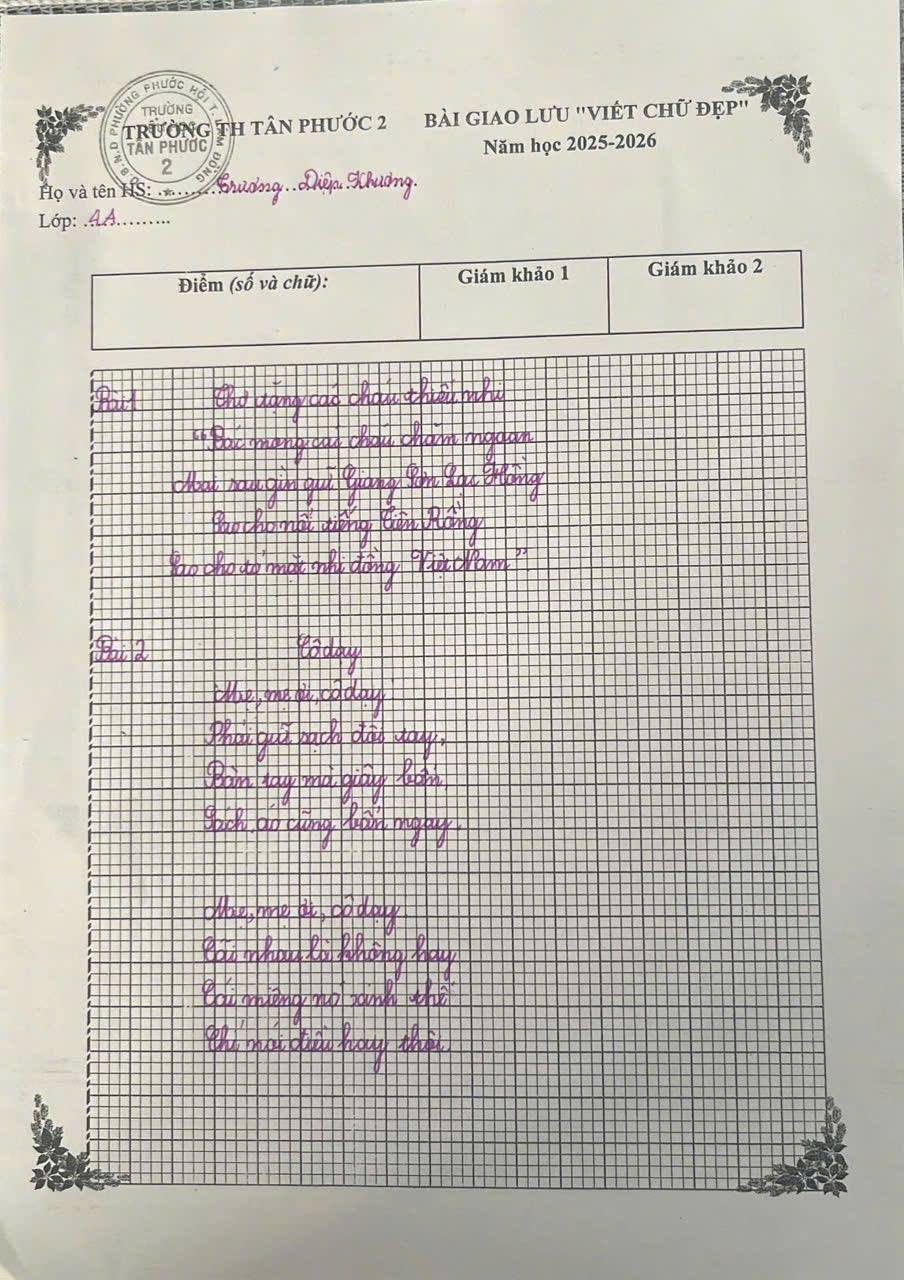 U.B.N.D PHƯỜNG PHƯỚC HỘI T. LÂM ĐỒNG
TRƯỜNG
TÂN PHƯỚC
2
TRƯỜNG TH TÂN PHƯỚC 2
BÀI GIAO LƯU "VIẾT CHỮ ĐẸP"
Năm học 2025-2026
Họ và tên HS: Trương Diệp Khương.
Lớp: 4A
Điểm (số và chữ):
Giám khảo 1
Giám khảo 2
Bài 1
Thơ tặng các cháu thiếu nhi
"Bác mong các cháu chăm ngoan
Mai sau gìn giữ Giang Sơn Lạc Hồng
Sao cho nổi tiếng Tiên Rồng
Sao cho tỏ mặt nhi đồng Việt Nam"
Bài 2
Cô dạy
Mẹ, mẹ ơi, cô dạy
Phải giữ sạch đôi tay,
Bàn tay mà giây bẩn,
Sách, áo cũng bẩn ngay.
Mẹ, mẹ ơi, cô dạy
Cãi nhau là không hay
Cái miệng nó xinh thế
Chỉ nói điều hay thôi.